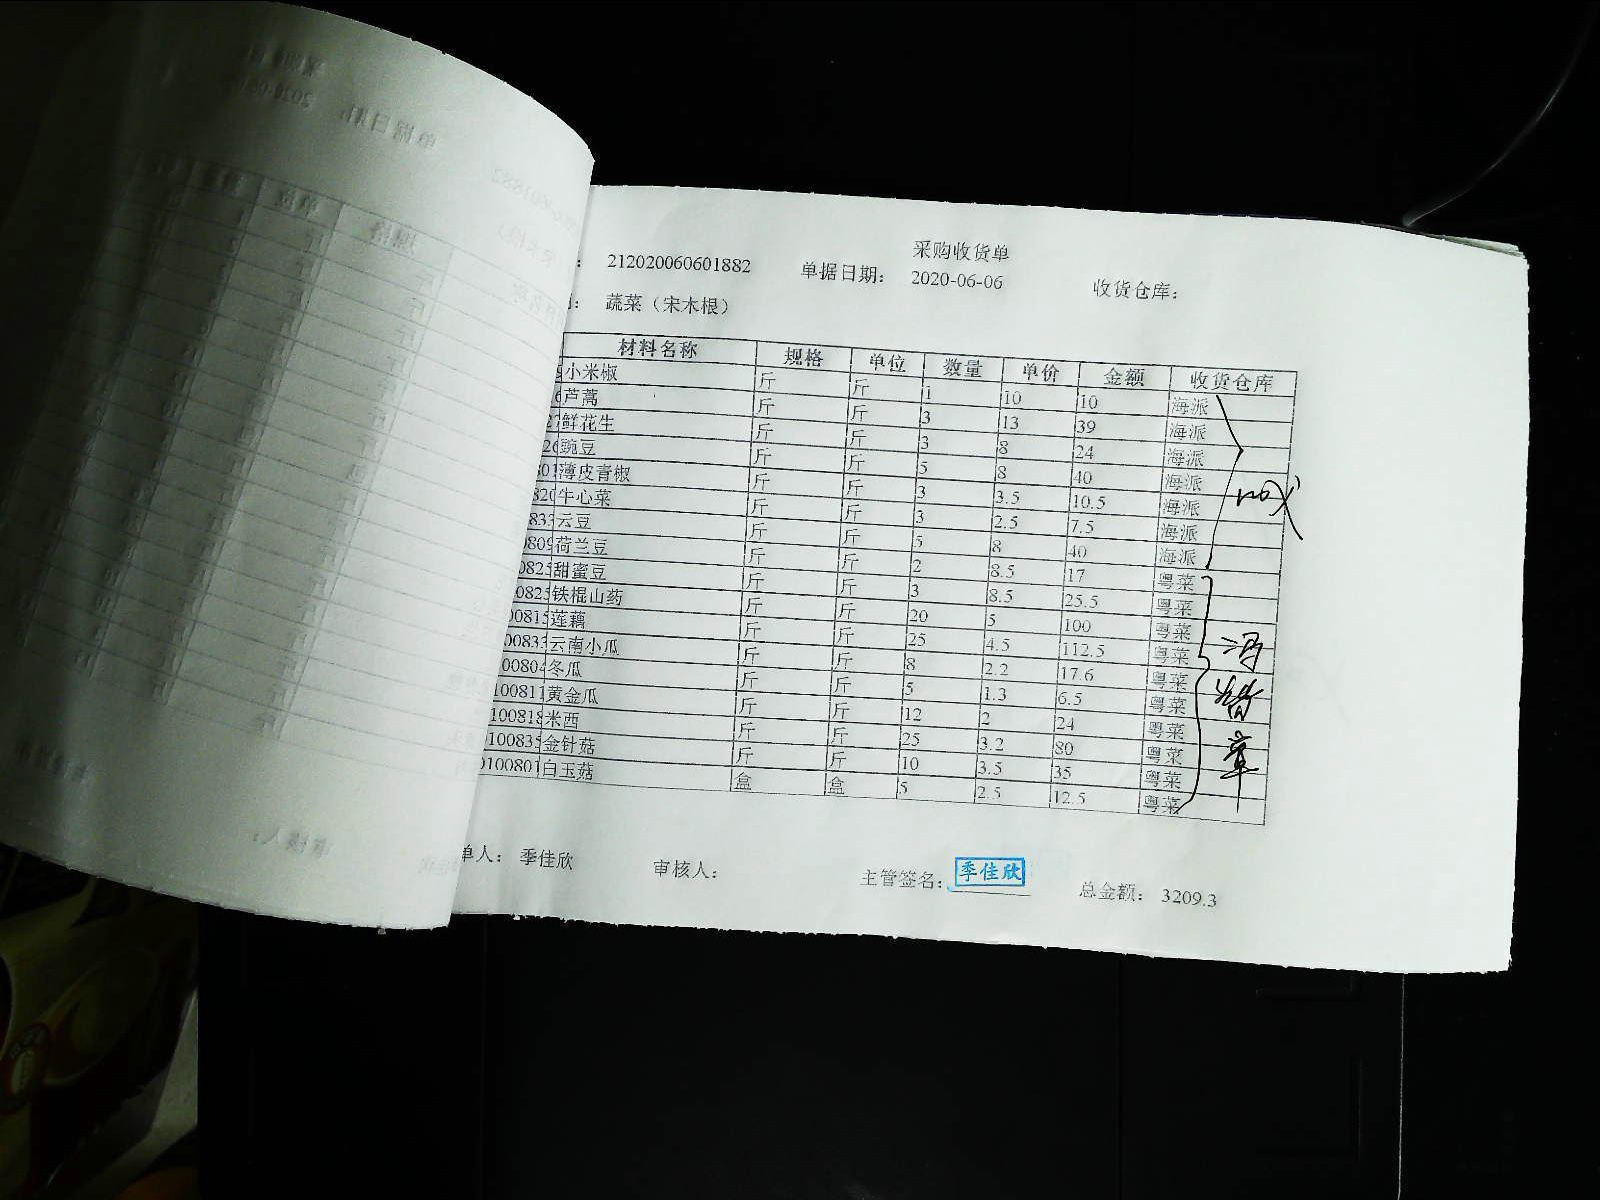 采购收货单
: 212020060601882 单据日期: 2020-06-06 收货仓库:
: 蔬菜（宋木根）
材料名称 规格 单位 数量 单价 金额 收货仓库
小米椒 斤 斤 1 10 10 海派
芦蒿 斤 斤 3 13 39 海派
鲜花生 斤 斤 3 8 24 海派
豌豆 斤 斤 5 8 40 海派
薄皮青椒 斤 斤 3 3.5 10.5 海派
820 牛心菜 斤 斤 3 2.5 7.5 海派
833 云豆 斤 斤 5 8 40 海派
0809 荷兰豆 斤 斤 2 8.5 17 粤菜
0825 甜蜜豆 斤 斤 3 8.5 25.5 粤菜
0825 铁棍山药 斤 斤 20 5 100 粤菜
00815 莲藕 斤 斤 25 4.5 112.5 粤菜
00833 云南小瓜 斤 斤 8 2.2 17.6 粤菜
100804 冬瓜 斤 斤 5 1.3 6.5 粤菜
100811 黄金瓜 斤 斤 12 2 24 粤菜
100818 米西 斤 斤 25 3.2 80 粤菜
0100835 金针菇 斤 斤 10 3.5 35 粤菜
0100801 白玉菇 盒 盒 5 2.5 12.5 粤菜
单人: 季佳欣 审核人: 主管签名: 季佳欣 总金额: 3209.3